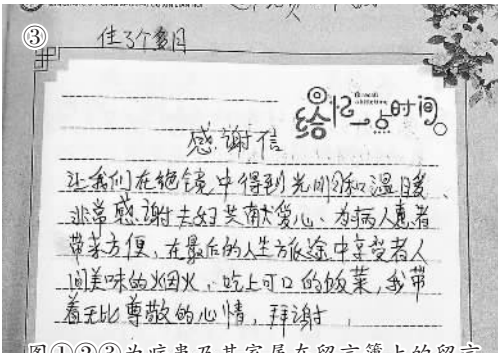 ③
住了个多月
给忆一点时间
感谢信
让我们在绝镜中得到光明和温暖、
非常感谢夫妇艾献爱心、为病人患者
带来方便,在最后的人生方派途中享受着人
间美味的烟火、吃上可口的饭菜,我带
着无比尊敬的心情,拜谢
图①②③为病患及其家属在留言簿上的留言